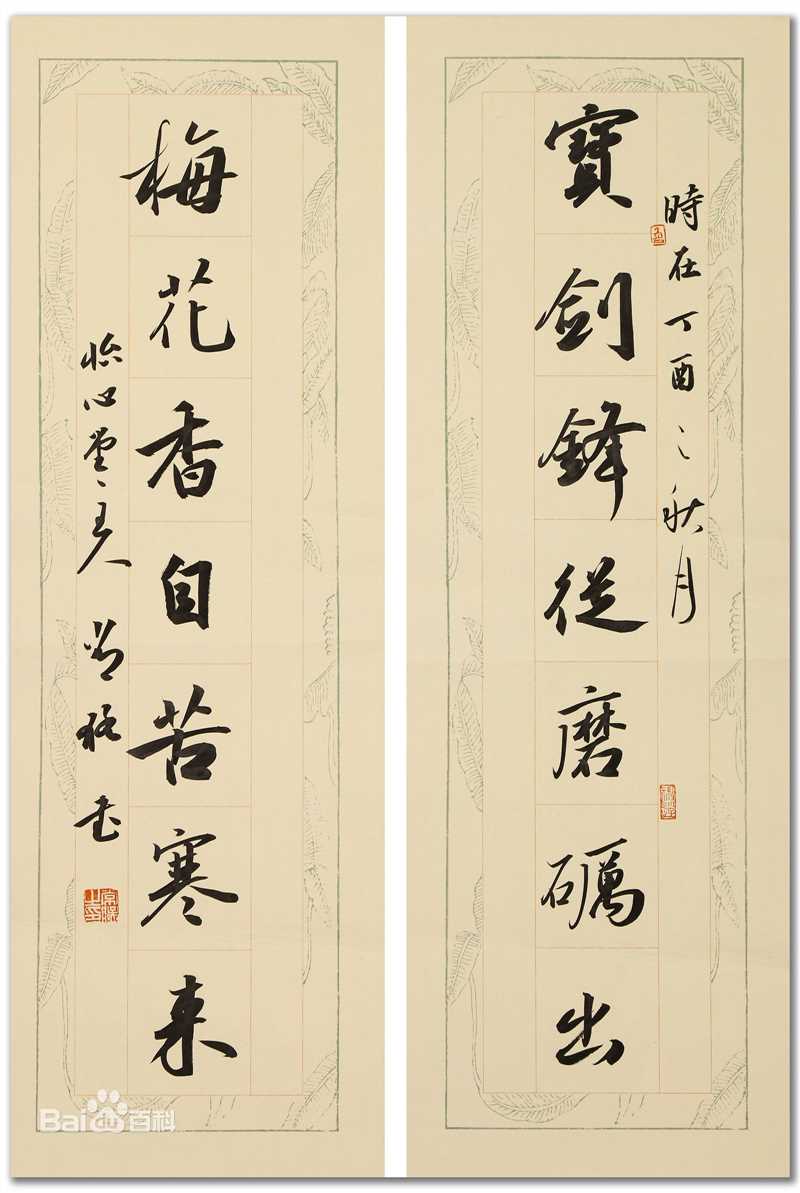 時在丁酉之秋月
寶劍鋒從磨礪出
梅花香自苦寒来
怡心堂主人
书
Bai百科